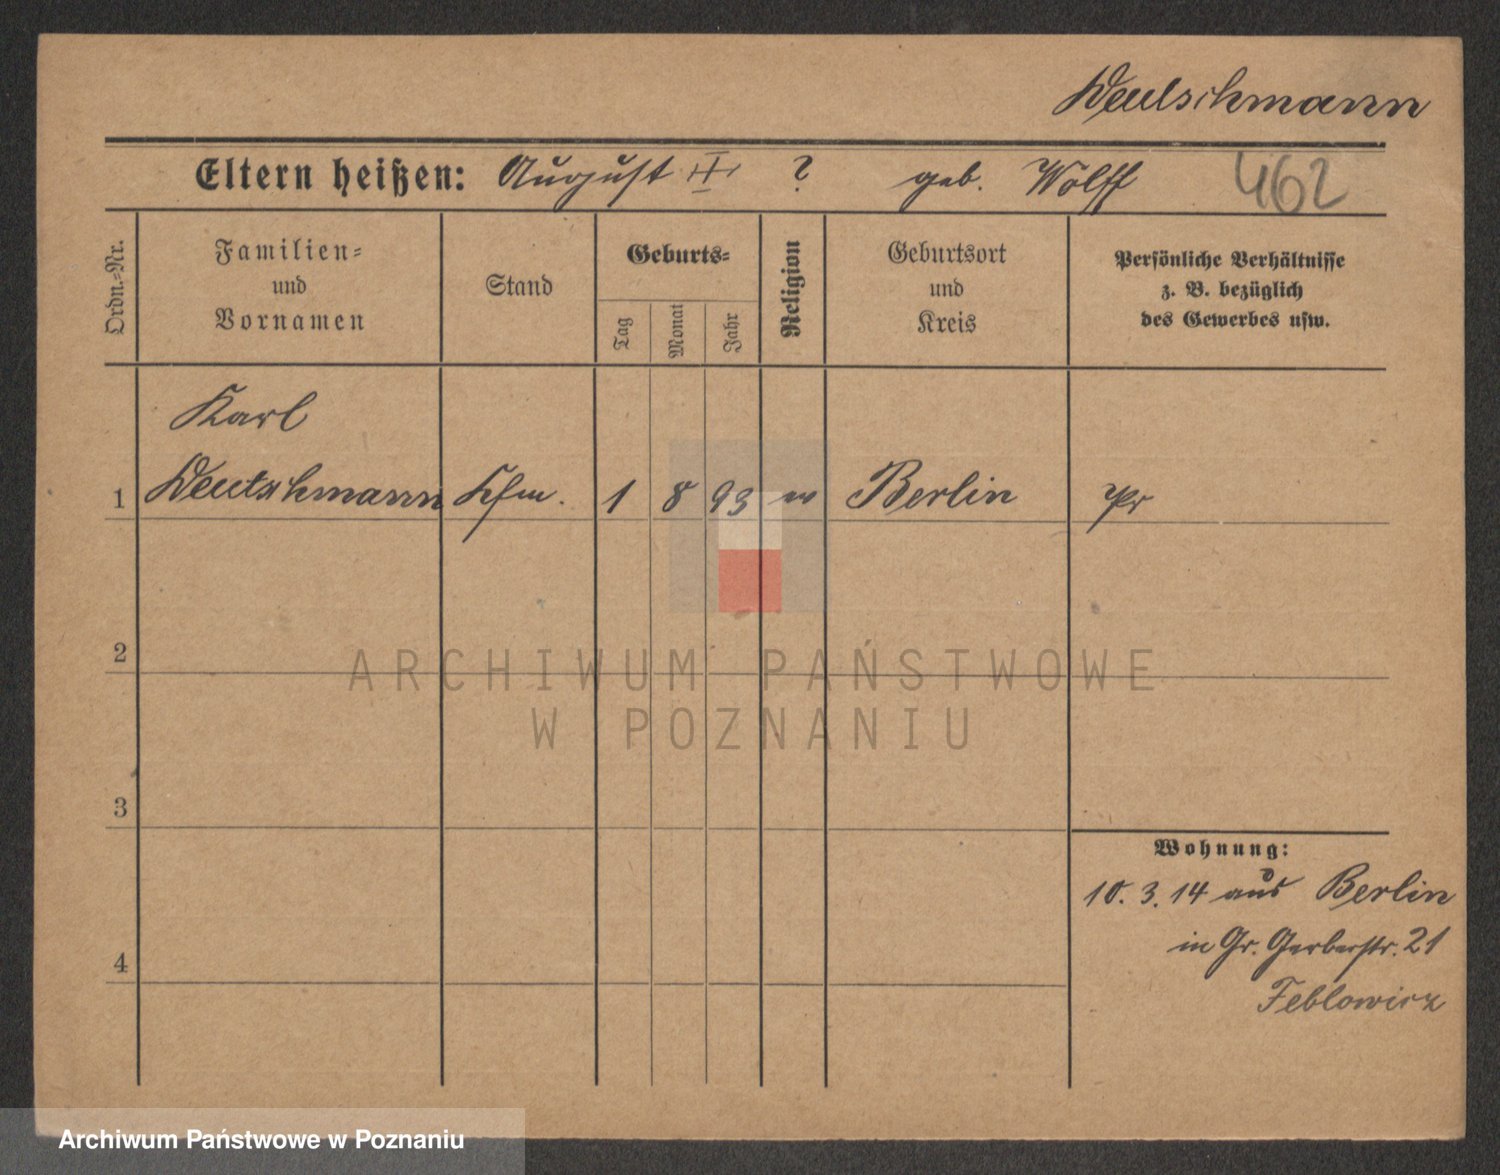 Deutschmann
Eltern heißen: August ? geb. Wolff 462
Ordn.-Nr.
Familien-
und
Vornamen
Stand
Geburts-
Tag
Monat
Jahr
Religion
Geburtsort
und
Kreis
Persönliche Verhältnisse
z. B. bezüglich
des Gewerbes usw.
Karl
1 Deutschmann Kfm. 1 8 93 ev Berlin Pr
2
3
4
Wohnung:
10. 3. 14 aus Berlin
in Gr. Gerberstr. 21
Feblowicz
ARCHIWUM PAŃSTWOWE
W POZNANIU
Archiwum Państwowe w Poznaniu